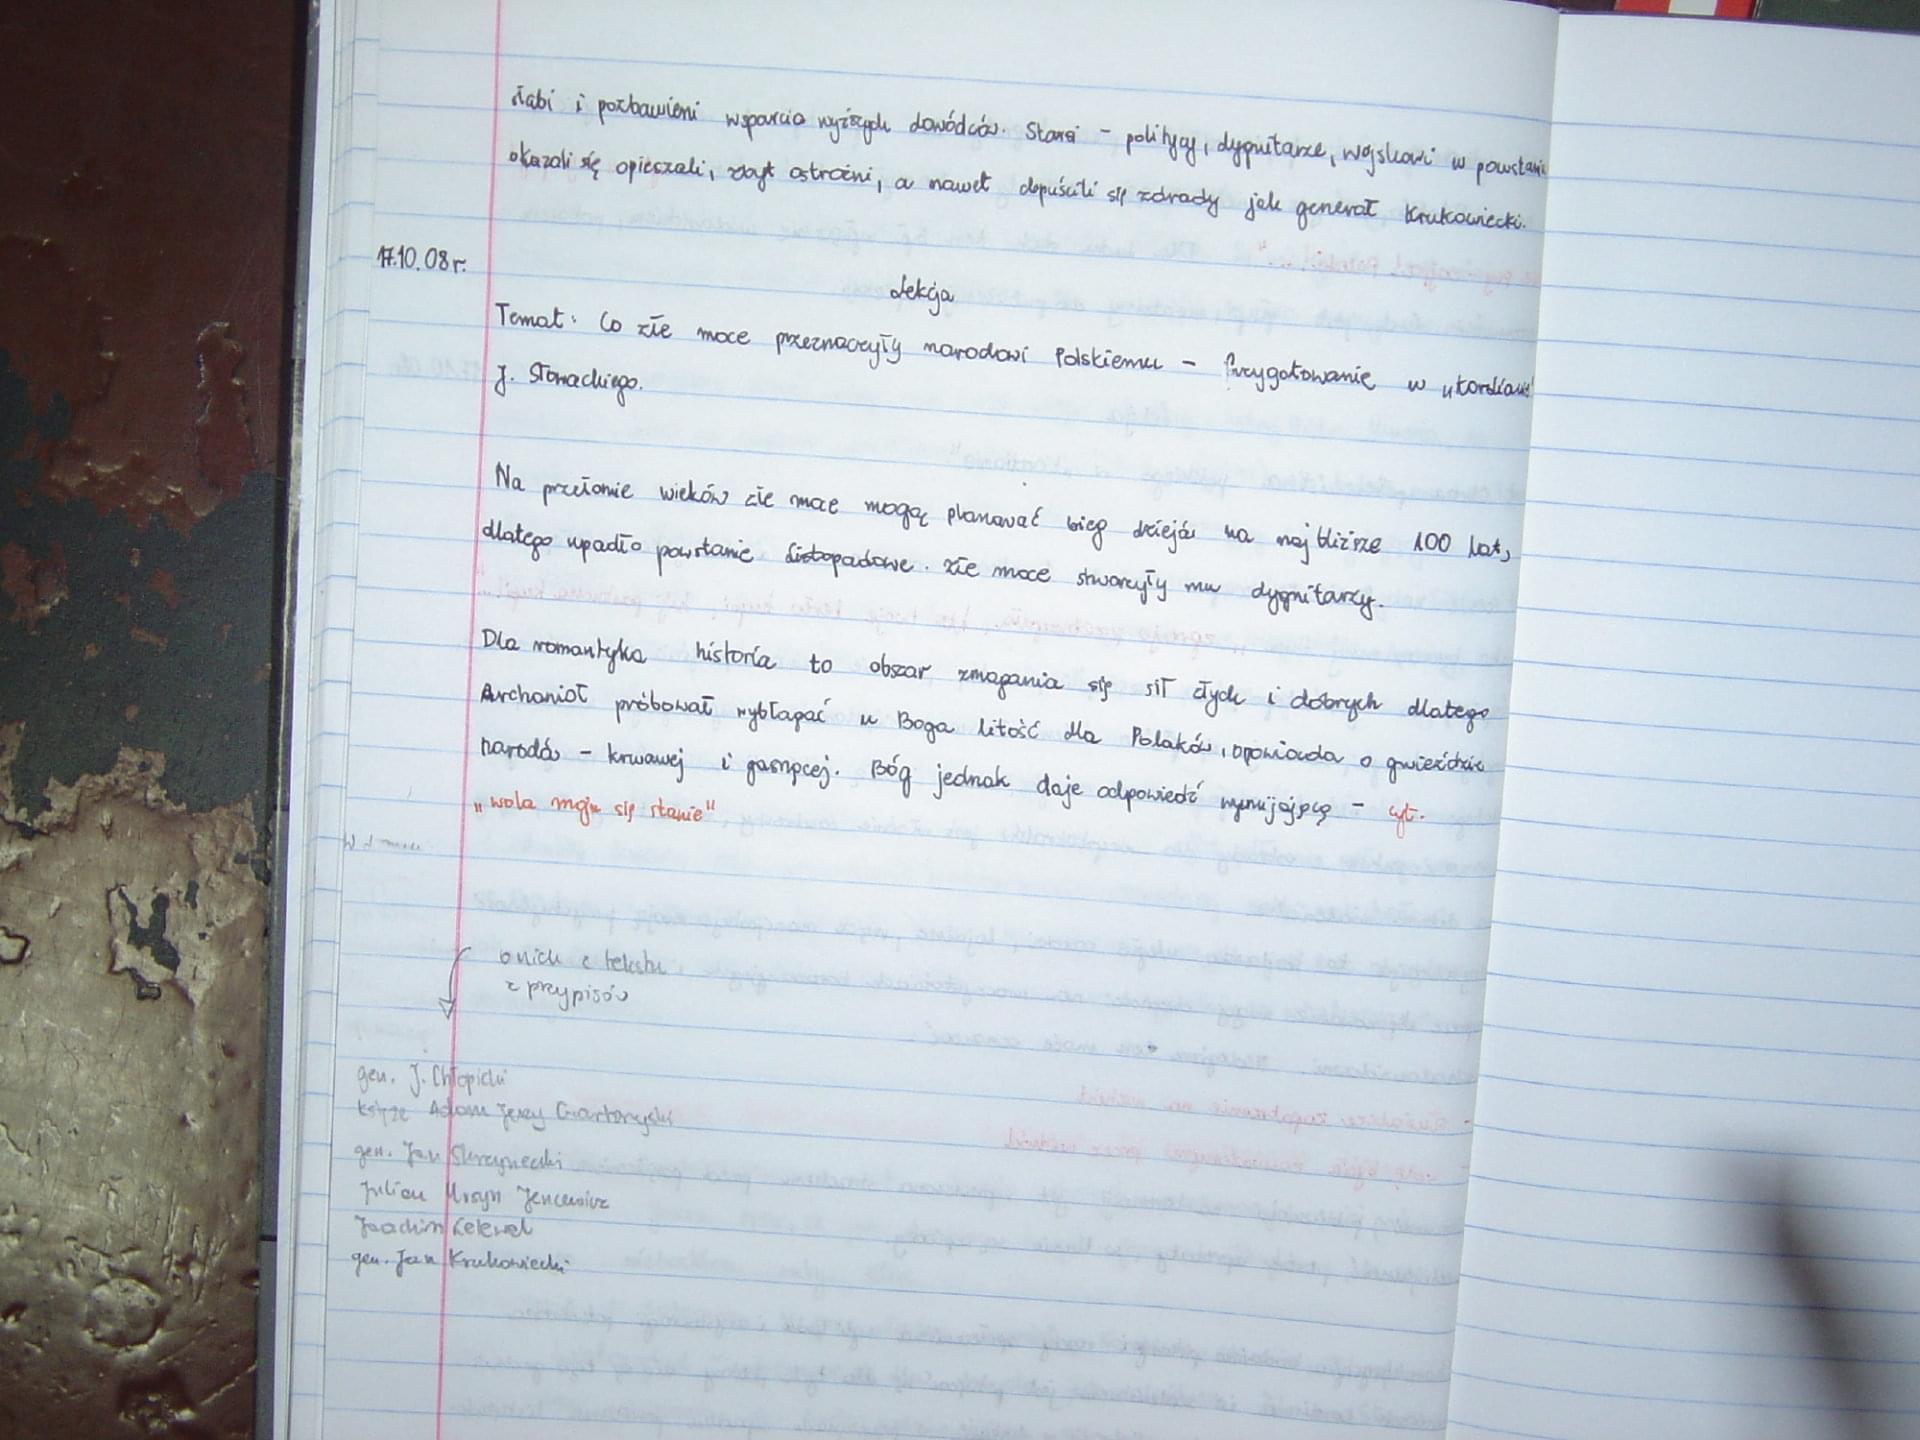 słabi i pozbawieni wsparcia wyższych dowódców. Starsi - politycy, dygnitarze, wojskowi w powstaniu
okazali się opieszali, zbyt ostrożni, a nawet dopuścili się zdrady jak generał Krukowiecki.
17.10.08r.
Lekcja
Temat: Co złe moce przeznaczyły narodowi Polskiemu - Przygotowanie w „Kordianie”
J. Słowackiego.
Na przełomie wieków złe moce mogą planować bieg dziejów na najbliższe 100 lat,
dlatego upadło powstanie Listopadowe. Złe moce stworzyły mu dygnitarzy.
Dla romantyka historia to obszar zmagania się sił złych i dobrych dlatego
Archanioł próbował wybłagać u Boga litość dla Polaków, opowiada o gwieździe
narodów - krwawej i gasnącej. Bóg jednak daje odpowiedź wymijającą - cyt.
„wola moja się stanie"
W domu
o nich z tekstu
z przypisów
gen. J. Chłopicki
książe Adam Jerzy Czartoryski
gen. Jan Skrzynecki
Julian Ursyn Jencewicz
Joachim Lelewel
gen. Jan Krukowiecki